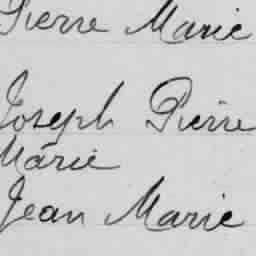 Pierre Marie
Joseph Pierre
Marie
Jean Marie